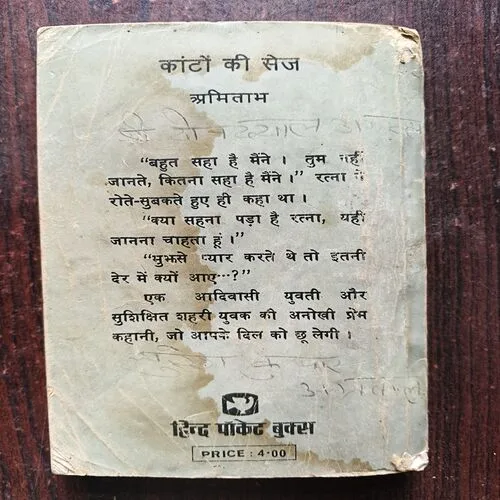 कांटों की सेज
अमिताभ
"बहुत सहा है मैंने । तुम नहीं
जानते, कितना सहा है मैंने ।" रत्ना ने
रोते-सुबकते हुए ही कहा था ।
"क्या सहना पड़ा है रत्ना, यही
जानना चाहता हूं ।"
"मुझसे प्यार करते थे तो इतनी
देर में क्यों आए···?"
एक आदिवासी युवती और
सुशिक्षित शहरी युवक की अनोखी प्रेम
कहानी, जो आपके दिल को छू लेगी ।
कुमार
हिन्द पॉकेट बुक्स
PRICE : 4·00